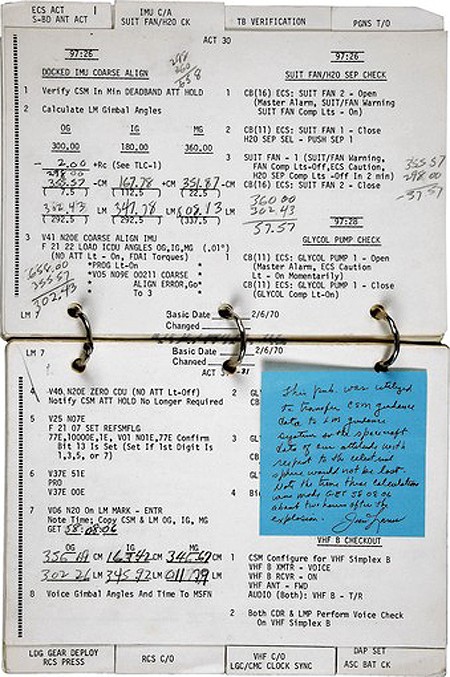 ECS ACT
S-BD ANT ACT
IMU C/A
SUIT FAN/H2O CK
TB VERIFICATION
PGNS T/O
ACT 30
97:26
DOCKED IMU COARSE ALIGN
1 Verify CSM In Min DEADBAND ATT HOLD
2 Calculate LM Gimbal Angles
OG IG MG
300.00 180.00 360.00
- 2.00 +Rc (See TLC-1)
298.00
355.57 -CM 167.78 +CM 351.87 -CM
( 7.5 ) (112.5 ) ( 22.5 )
302.43 LM 347.78 LM 008.13 LM
(292.5 ) (292.5 ) (337.5 )
3 V41 N20E COARSE ALIGN IMU
F 21 22 LOAD ICDU ANGLES OG,IG,MG (.01°)
(NO ATT Lt - On, FDAI Torques)
*PROG Lt-On *
*V05 N09E 00211 COARSE *
* ALIGN ERROR,Go*
* To 3 *
658.00
355.57
302.43
LM 7
97:26
SUIT FAN/H2O SEP CHECK
1 CB(16) ECS: SUIT FAN 2 - Open
(Master Alarm, SUIT/FAN Warning
SUIT FAN Comp Lts - On)
2 CB(11) ECS: SUIT FAN 1 - Close
H2O SEP SEL - PUSH SEP 1
3 SUIT FAN - 1 (SUIT/FAN Warning,
FAN Comp Lts-Off,ECS Caution,
H2O SEP Comp Lts -Off In 2 min)
CB(16) ECS: SUIT FAN 2 - Close
355.57
298.00
-57.57
360.00
302.43
57.57
97:28
GLYCOL PUMP CHECK
1 CB(16) ECS: GLYCOL PUMP 1 - Open
(Master Alarm, ECS Caution
Lt - On Momentarily)
CB(16) ECS: GLYCOL PUMP 1 - Close
(GLYCOL Comp Lt-On)
Basic Date 2/6/70
Changed
LM 7
Basic Date 2/6/70
Changed
4 V40 N20E ZERO CDU (NO ATT Lt-Off)
Notify CSM ATT HOLD No Longer Required
5 V25 N07E
F 21 07 SET REFSMFLG
77E,10000E,1E, V01 N01E,77E Confirm
Bit 13 Is Set (Set If 1st Digit Is
1,3,5, or 7)
6 V37E 51E
PRO
V37E 00E
7 V06 N20 On LM MARK - ENTR
Note Time; Copy CSM & LM OG, IG, MG
GET 58:08:06
OG IG MG
CM CM
302.26 LM 345.92 LM 011.79 LM
8 Voice Gimbal Angles And Time To MSFN
2
3
4
This pub. was utilized
to transfer CSM guidance
data to LM guidance
system so the spacecraft
data of our attitude with
respect to the celestial
sphere would not be lost.
Note the time these calculations
were made GET 58 08 06
about two hours after the
explosion.
VHF B CHECKOUT
1 CSM Configure for VHF Simplex B
VHF B XMTR - VOICE
VHF B RCVR - ON
VHF ANT - FWD
AUDIO (Both): VHF B - T/R
2 Both CDR & LMP Perform Voice Check
On VHF Simplex B
LDG GEAR DEPLOY
RCS PRESS
RCS C/O
VHF C/O
LGC/CMC CLOCK SYNC
DAP SET
ASC BAT CK